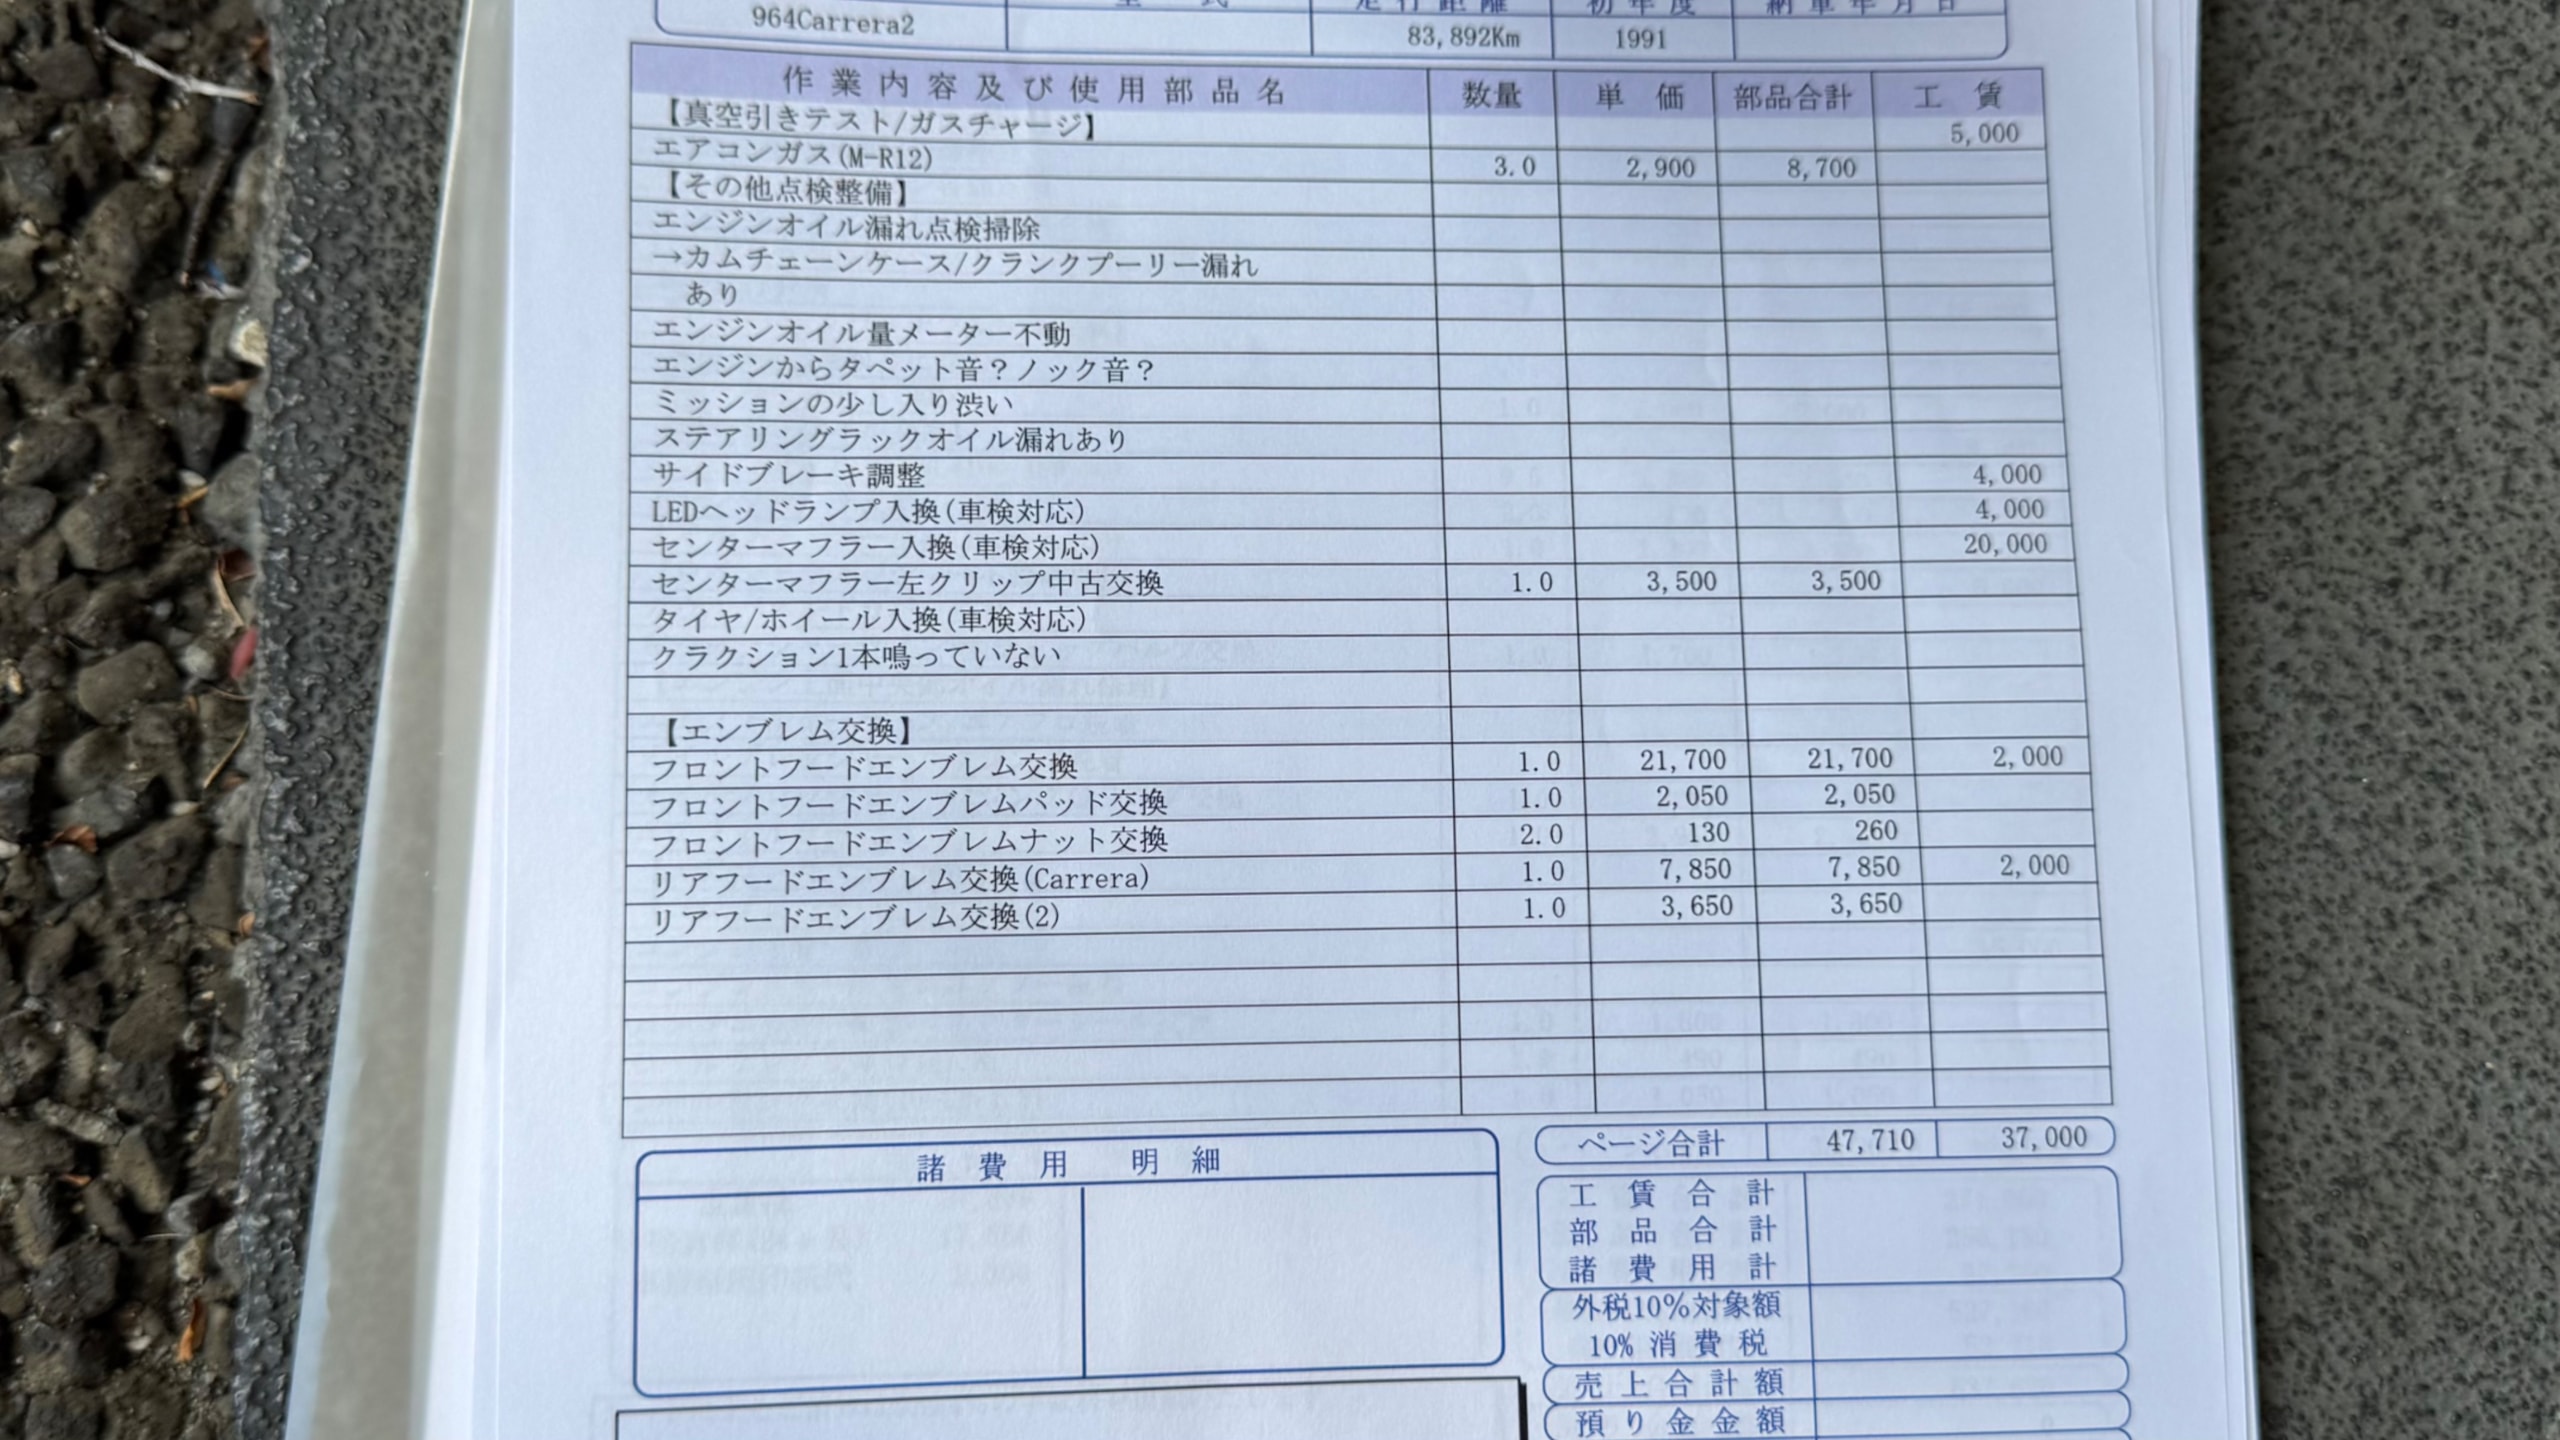 型 式 走行距離 初年度 納車年月日
964Carrera2 83,892Km 1991
作業内容及び使用部品名 数量 単価 部品合計 工賃
【真空引きテスト/ガスチャージ】 5,000
エアコンガス(M-R12) 3.0 2,900 8,700
【その他点検整備】
エンジンオイル漏れ点検掃除
→カムチェーンケース/クランクプーリー漏れ
あり
エンジンオイル量メーター不動
エンジンからタペット音？ノック音？
ミッションの少し入り渋い
ステアリングラックオイル漏れあり
サイドブレーキ調整 4,000
LEDヘッドランプ入換(車検対応) 4,000
センターマフラー入換(車検対応) 20,000
センターマフラー左クリップ中古交換 1.0 3,500 3,500
タイヤ/ホイール入換(車検対応)
クラクション1本鳴っていない
【エンブレム交換】
フロントフードエンブレム交換 1.0 21,700 21,700 2,000
フロントフードエンブレムパッド交換 1.0 2,050 2,050
フロントフードエンブレムナット交換 2.0 130 260
リアフードエンブレム交換(Carrera) 1.0 7,850 7,850 2,000
リアフードエンブレム交換(2) 1.0 3,650 3,650
ページ合計 47,710 37,000
諸費用 明細
工賃合計
部品合計
諸費用計
外税10%対象額
10%消費税
売上合計額
預り金金額